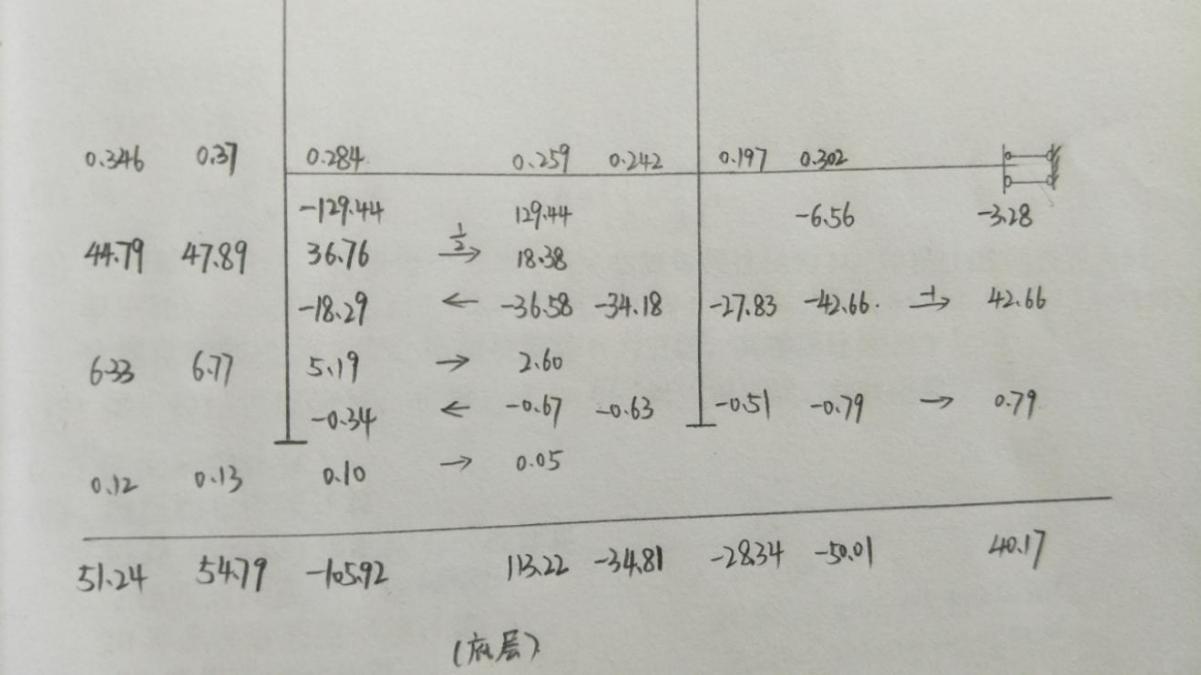 0.346 0.37 0.284 0.259 0.242 0.197 0.302
-129.44 129.44 -6.56 -3.28
44.79 47.89 36.76 1/2 → 18.38
-18.29 ← -36.58 -34.18 -27.83 -42.66 -1 → 42.66
6.33 6.77 5.19 → 2.60
-0.34 ← -0.67 -0.63 -0.51 -0.79 → 0.79
0.12 0.13 0.10 → 0.05
51.24 54.79 -105.92 113.22 -34.81 -28.34 -50.01 40.17
(底层)